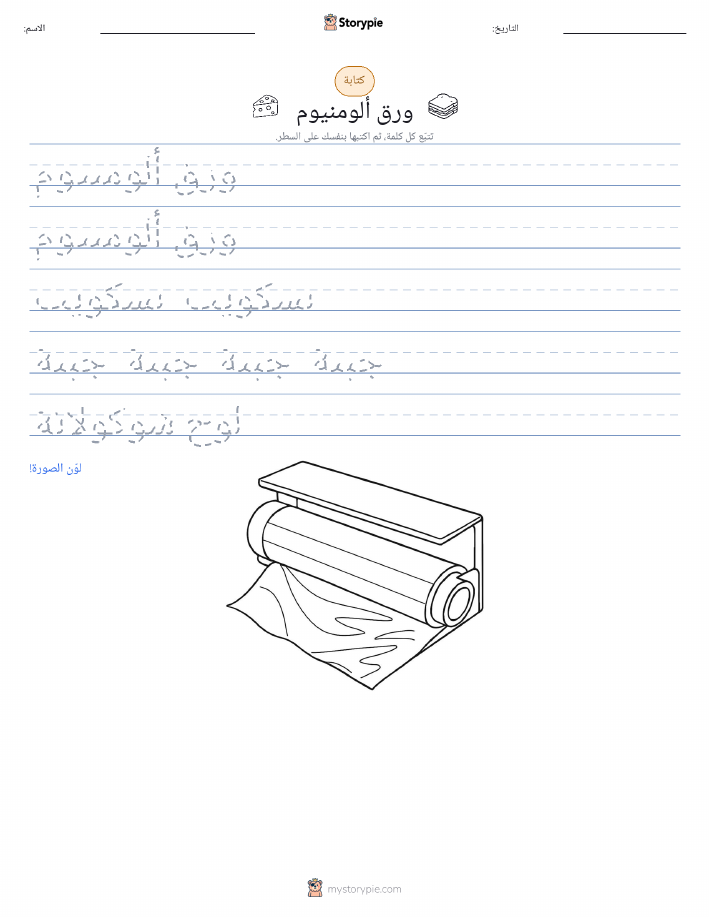 الاسم:
Storypie
التاريخ:
كتابة
ورق ألومنيوم
تتبّع كل كلمة، ثم اكتبها بنفسك على السطر.
ورق ألومنيوم
ورق ألومنيوم
بسكويت بسكويت
جبنة جبنة جبنة جبنة
لوح شوكولاتة
لوّن الصورة!
mystorypie.com